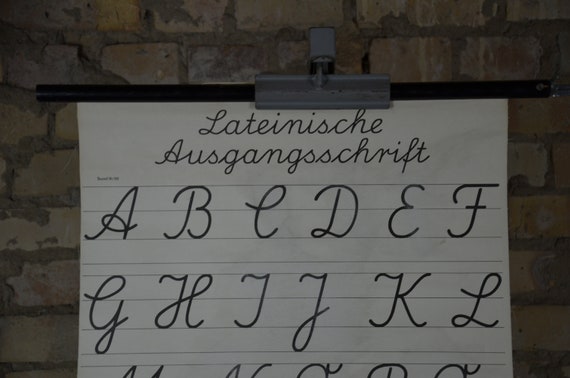 Lateinische
Ausgangsschrift
A B C D E F
G H I J K L